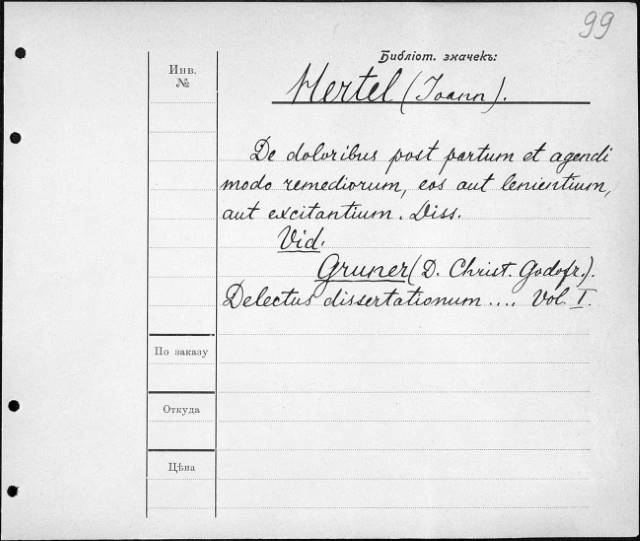 99
Библіот. значекъ:
Инв.
№
Hertel (Joann).
De doloribus post partum et agendi
modo remediorum, eos aut lenientium,
aut excitantium. Diss.
Vid.
Gruner (D. Christ. Godofr.).
Delectus dissertationum .... Vol. I.
По заказу
Откуда
Цѣна